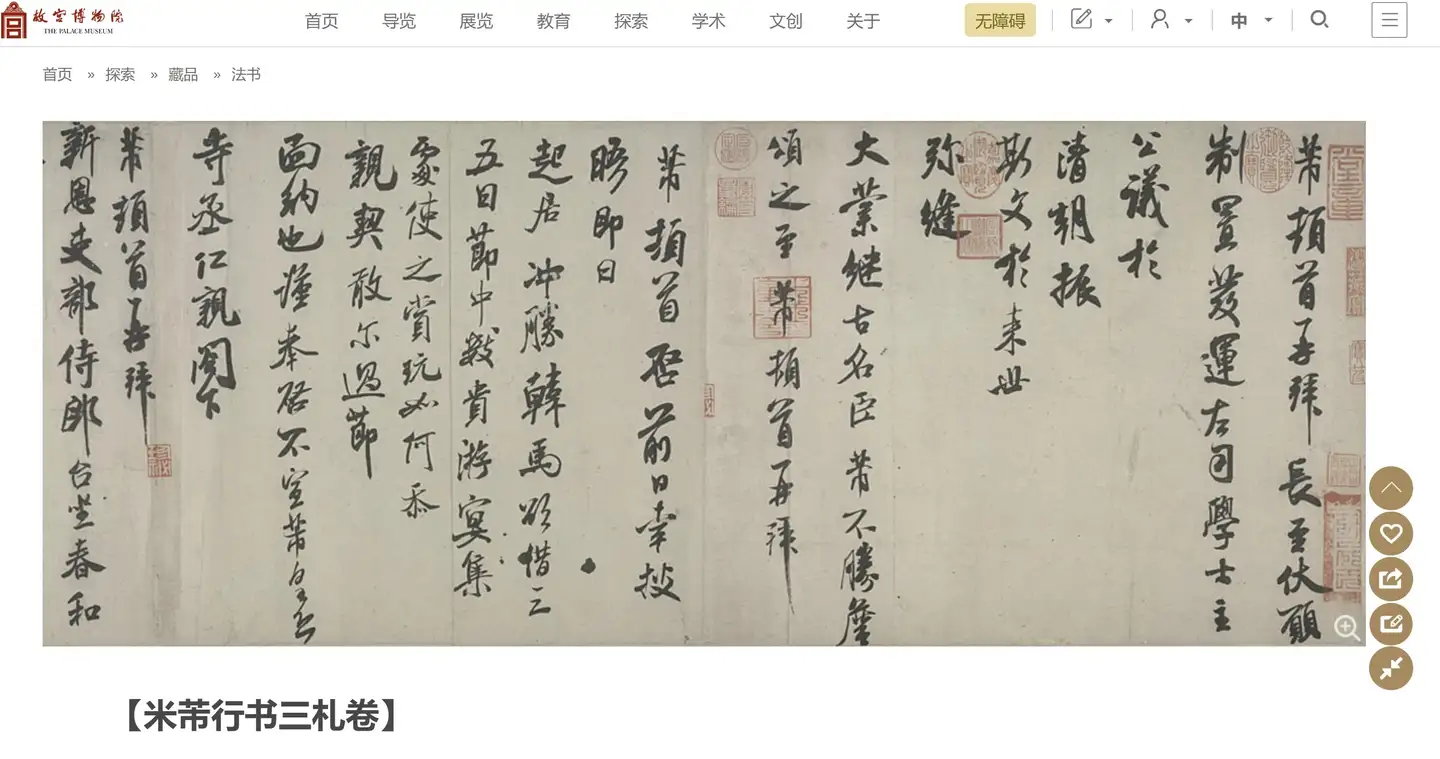 故宫博物院
THE PALACE MUSEUM
首页 导览 展览 教育 探索 学术 文创 关于 无障碍 中
首页 » 探索 » 藏品 » 法书
芾頓首再拜 長至伏願
制置發運左司學士主
公議於
清朝振
斯文於来世
弥縫
大業継古名臣 芾不勝
頌之至 芾頓首再拜
芾頓首啓前日幸披
晤即日
起居冲勝韓馬欲借三
五日節中数貴游宴集
處使之賞玩如何希
親契敢尔過節
面納也謹奉啓不宣芾
寺丞仁親閣下
芾頓首再拜
新恩吏部侍郎台坐春和
【米芾行书三札卷】